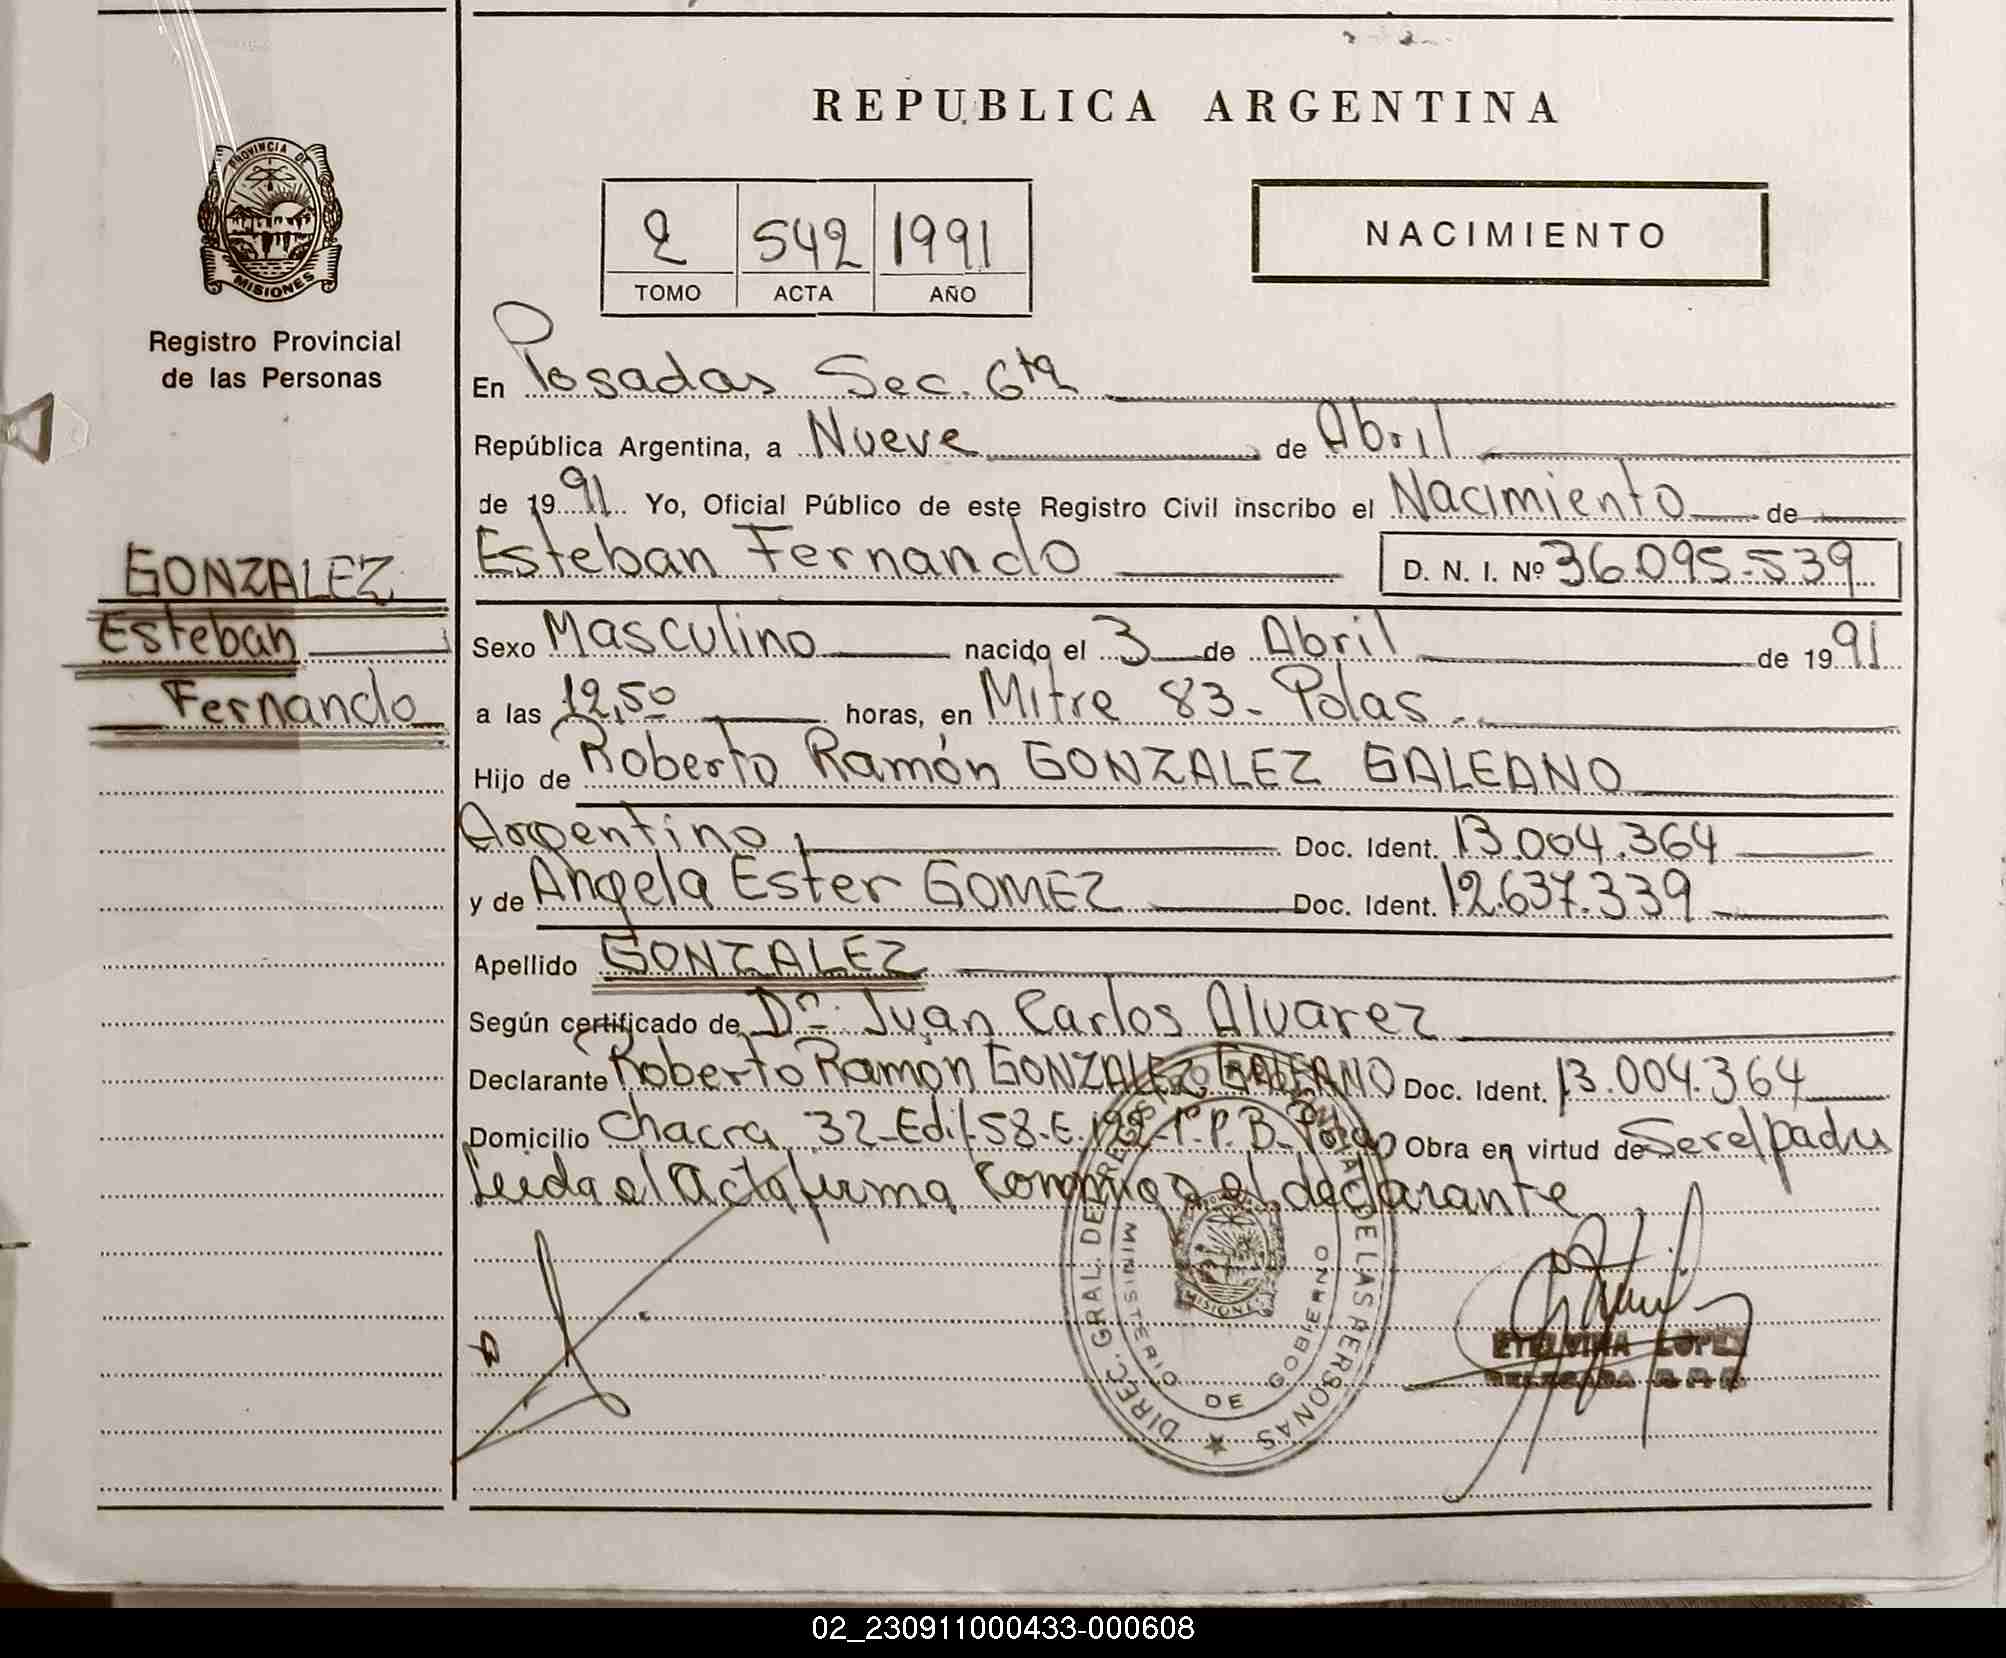 REPUBLICA ARGENTINA
PROVINCIA DE
MISIONES
Registro Provincial
de las Personas
2 542 1991
TOMO ACTA AÑO
NACIMIENTO
En Posadas Sec. 6ta
República Argentina, a Nueve de Abril
de 1991 Yo, Oficial Público de este Registro Civil inscribo el Nacimiento de
GONZALEZ
Esteban
Fernando
Esteban Fernando D. N. I. Nº 36.095.539
Sexo Masculino nacido el 3 de Abril de 1991
a las 12,50 horas, en Mitre 83- Pdas.
Hijo de Roberto Ramón GONZALEZ GALEANO
Argentino, Doc. Ident. 13.004.364
y de Angela Ester GOMEZ Doc. Ident. 12.637.339
Apellido GONZALEZ
Según certificado de Dr. Juan Carlos Alvarez
Declarante Roberto Ramon GONZALEZ GALEANO Doc. Ident. 13.004.364
Domicilio Chacra 32-Edif.58-E. Obra en virtud de Ser el padre
Leida el Acta firma conmigo el declarante
DIREC. GRAL. DE LAS PERSONAS
MINISTERIO DE GOBIERNO
MISIONES
ETELVINA LOPEZ
DELEGADA R.P.P.
02_230911000433-000608